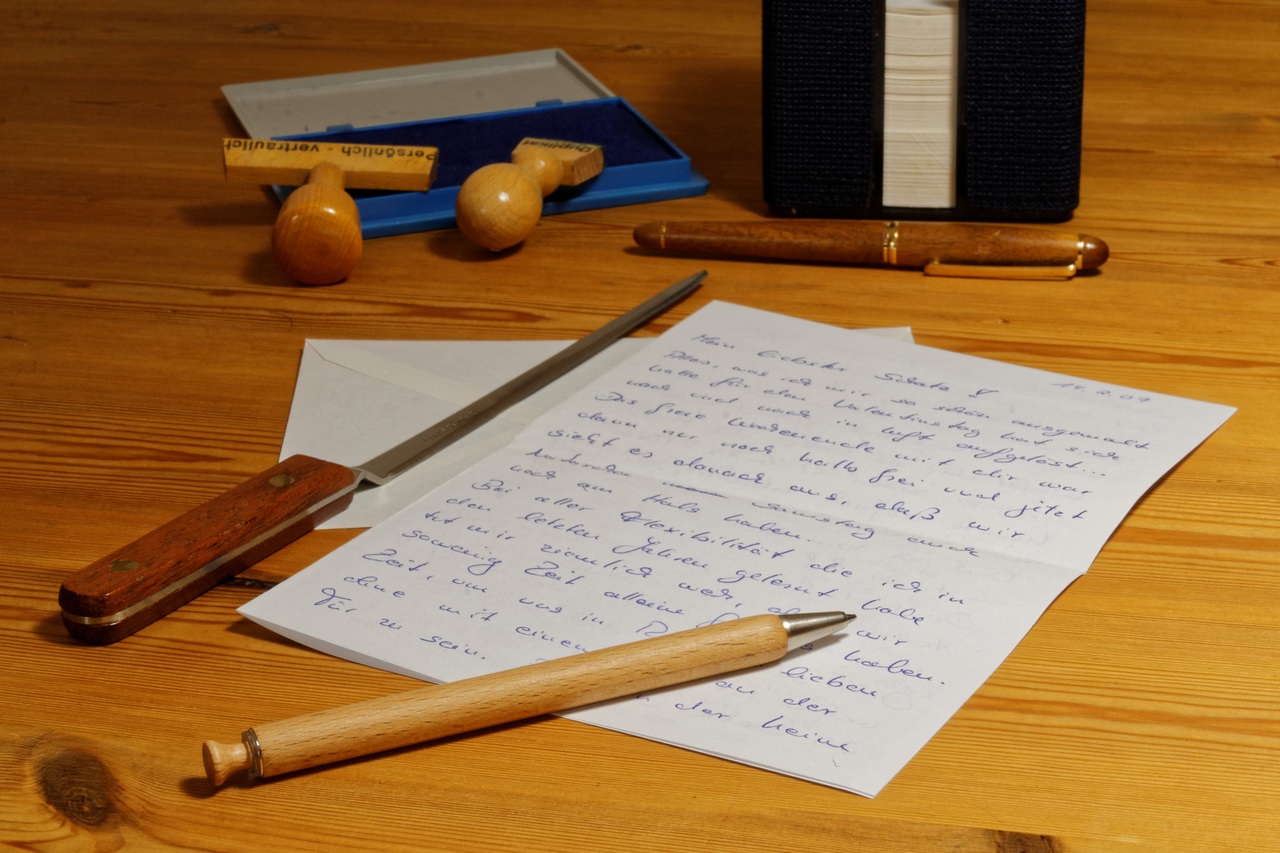 Persönlich - vertraulich
Duplikat
14.2.09
Mein liebster Schatz
Alles, was ich mir so schön ausgemalt
hatte für den Valentinstag hat sich
nach und nach in Luft aufgelöst...
Das freie Wochenende mit dir war
dann nur noch halb frei und jetzt
sieht es danach aus, daß wir
Samstag auch
noch am Hals haben.
Bei aller Flexibilität die ich in
den letzten Jahren gelernt habe
tut mir ziemlich weh, wir
sowenig Zeit alleine haben.
Zeit, um uns in lieben
ohne mit einem an der
Tür zu sein. der heim